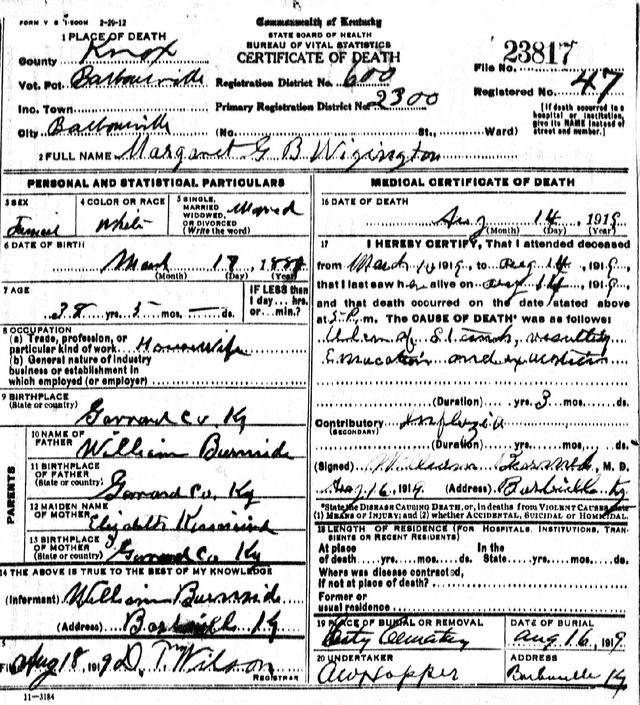 FORM V S 1-500M 2-29-12
Commonwealth of Kentucky
STATE BOARD OF HEALTH
BUREAU OF VITAL STATISTICS
CERTIFICATE OF DEATH
1 PLACE OF DEATH
County Knox
Vot. Pct. Barbourville
Inc. Town
City Barbourville
Registration District No. 600
Primary Registration District No. 2300
(No. St., Ward)
File No. 23817
Registered No. 47
[If death occurred in a hospital or institution, give its NAME instead of street and number.]
2 FULL NAME Margaret G B
PERSONAL AND STATISTICAL PARTICULARS
3 SEX
4 COLOR OR RACE White
5 SINGLE, MARRIED WIDOWED, OR DIVORCED (Write the word)
6 DATE OF BIRTH
March 18
(Month) (Day) (Year)
7 AGE
38 yrs. 5 mos. ds.
IF LESS than 1 day... hrs. or... min.?
8 OCCUPATION
(a) Trade, profession, or particular kind of work Housewife
(b) General nature of industry business or establishment in which employed (or employer)
9 BIRTHPLACE
(State or country) Garrard Co. Ky
PARENTS
10 NAME OF FATHER William Burnside
11 BIRTHPLACE OF FATHER
(State or country) Garrard Co. Ky
12 MAIDEN NAME OF MOTHER Elizabeth
13 BIRTHPLACE OF MOTHER
(State or country) Garrard Co. Ky
14 THE ABOVE IS TRUE TO THE BEST OF MY KNOWLEDGE
(Informant) William Burnside
(Address) Ky
15
Aug 18, 1919 D. T. Wilson
REGISTRAR
11-3184
MEDICAL CERTIFICATE OF DEATH
16 DATE OF DEATH
Aug 14, 1919
(Month) (Day) (Year)
17 I HEREBY CERTIFY, That I attended deceased
from March 1919, to Aug 14, 1919,
that I last saw h alive on Aug 14, 1919,
and that death occurred on the date stated above
at 5 P.m. The CAUSE OF DEATH was as follows:
Ulcer of Stomach, resulting
and
(Duration) yrs. 3 mos. ds.
Contributory
(SECONDARY)
(Duration) yrs. mos. ds.
(Signed) M. D.
Aug 16, 1919 (Address) Ky
*State the DISEASE CAUSING DEATH, or, in deaths from VIOLENT CAUSES state (1) MEANS OF INJURY; and (2) whether ACCIDENTAL, SUICIDAL or HOMICIDAL.
18 LENGTH OF RESIDENCE (FOR HOSPITALS, INSTITUTIONS, TRANSIENTS OR RECENT RESIDENTS)
At place of death yrs. mos. ds. In the State yrs. mos. ds.
Where was disease contracted, if not at place of death?
Former or usual residence
19 PLACE OF BURIAL OR REMOVAL
City Cemetery
DATE OF BURIAL
Aug 16, 1919
20 UNDERTAKER
A W Hopper
ADDRESS
Barbourville Ky